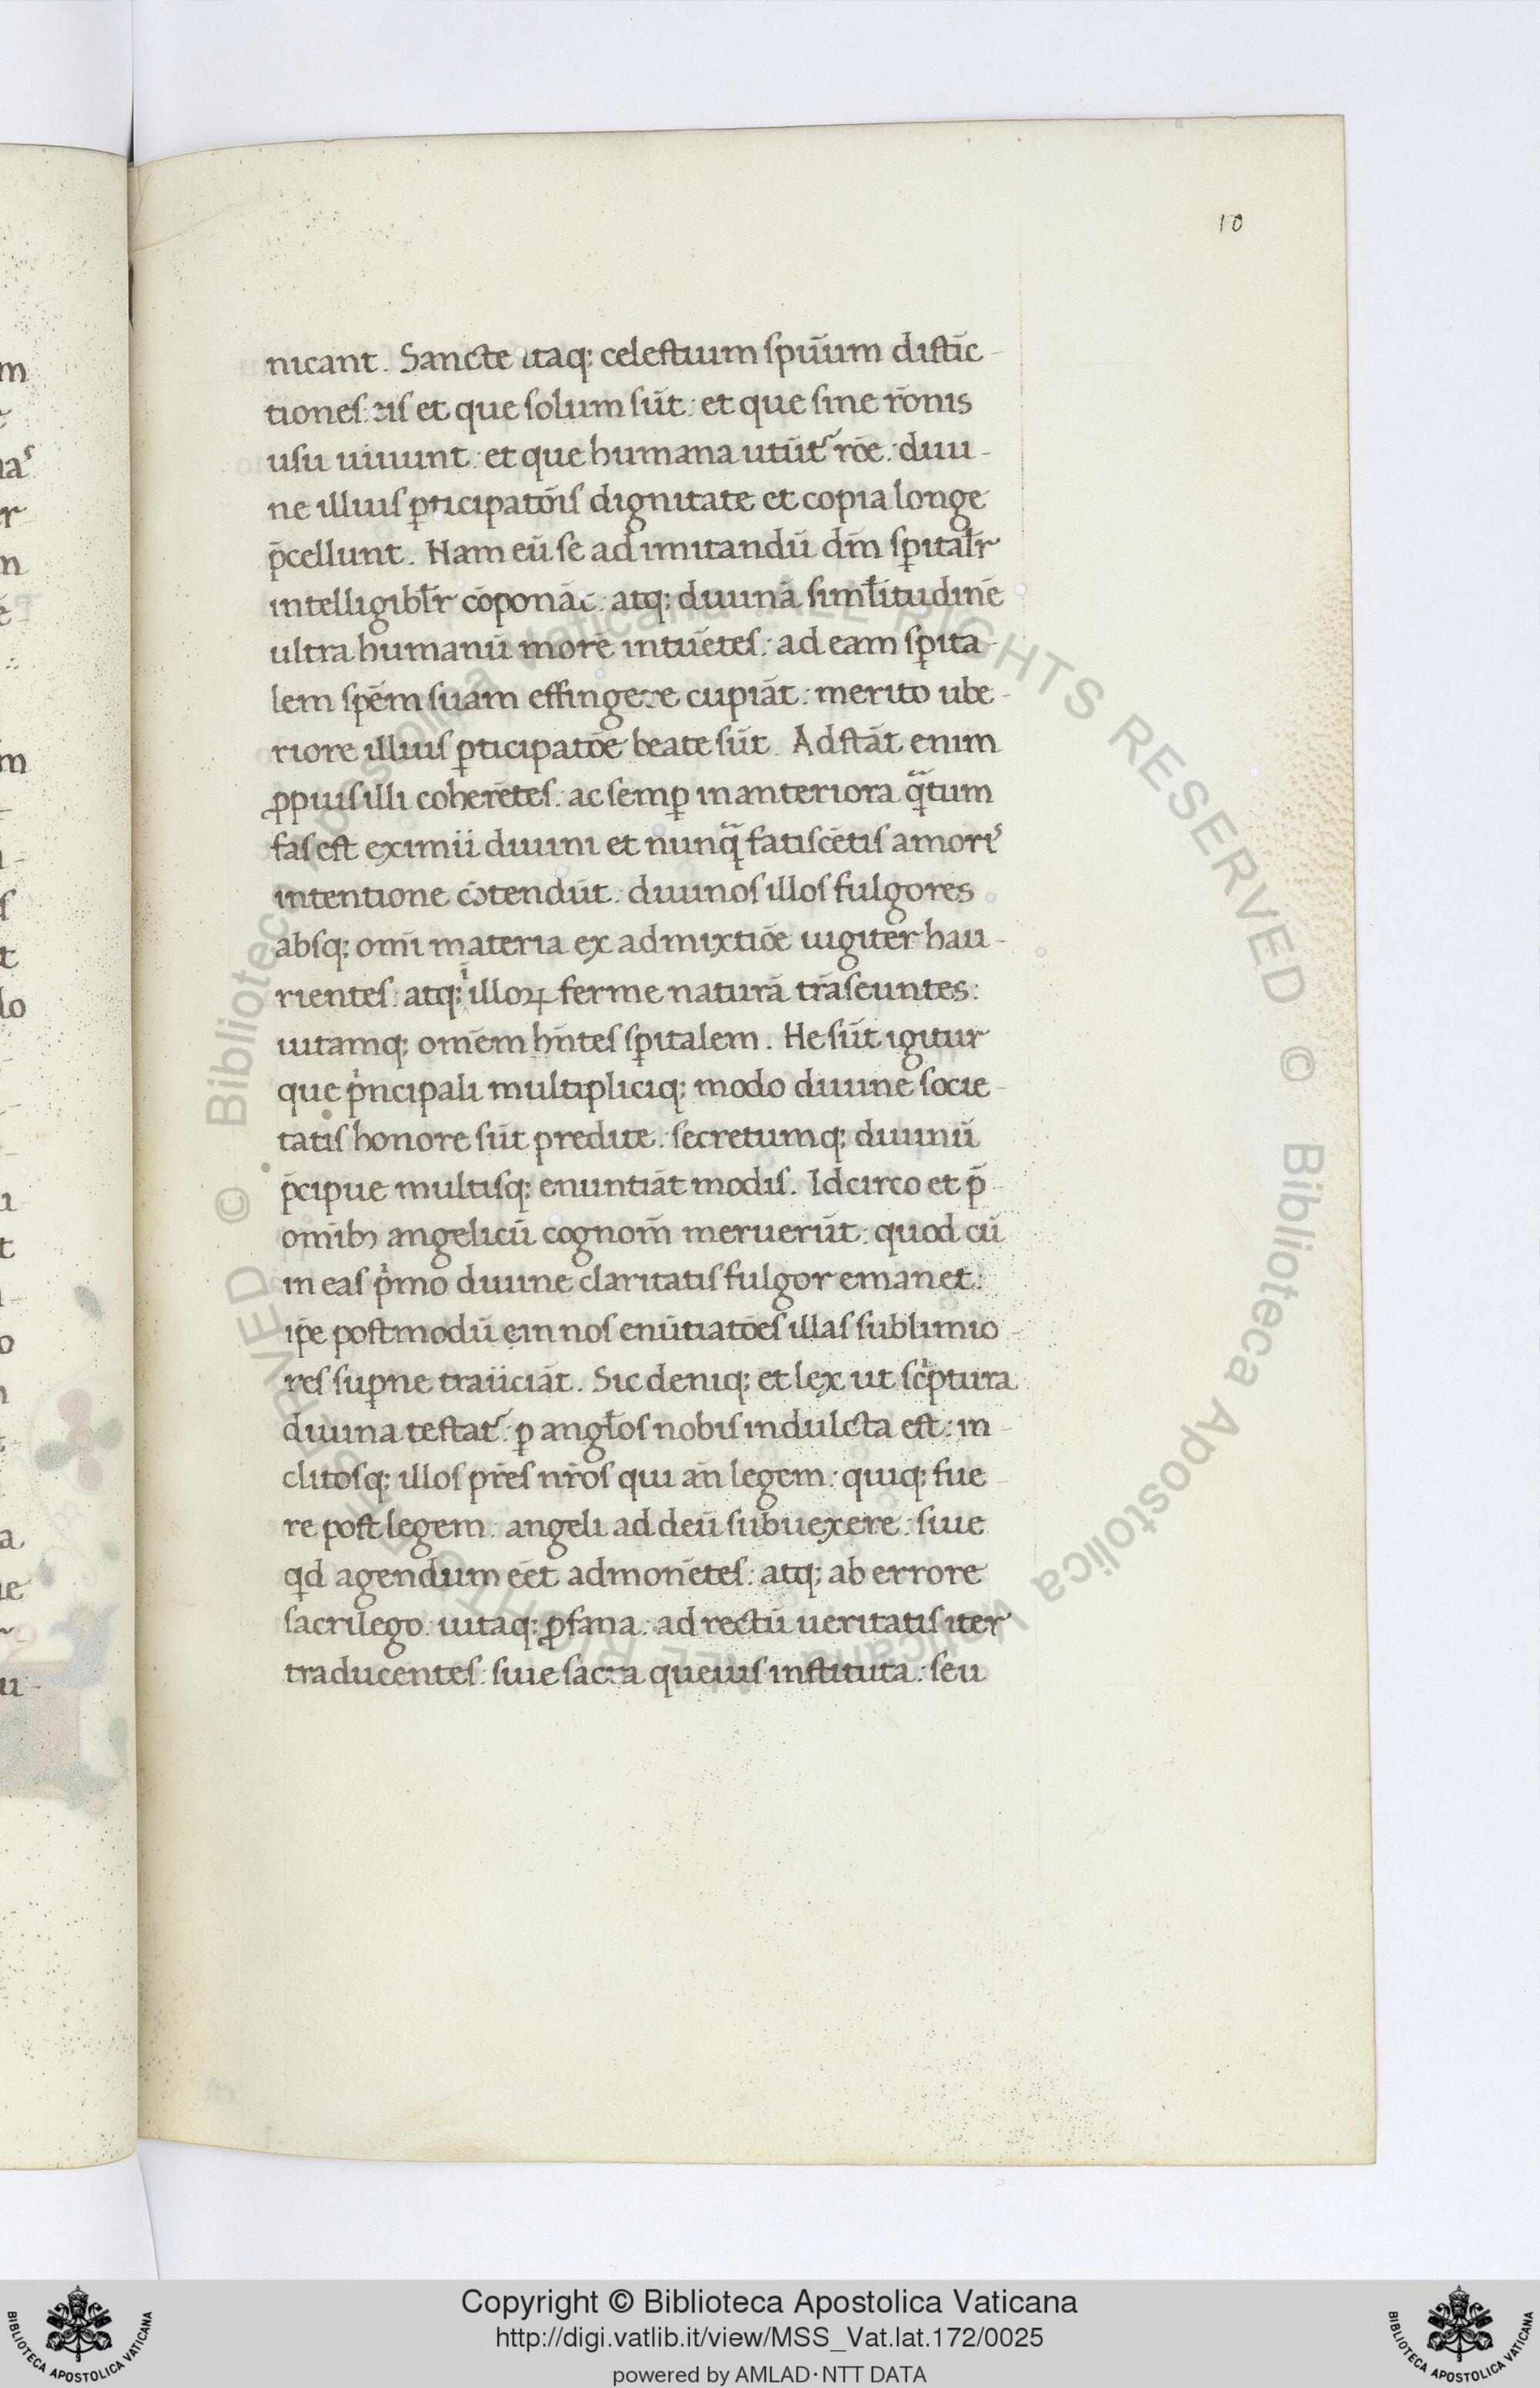 10
nicant. Sancte itaq; celestium spūum distīc-
tiones: iis et que solum sūt: et que sine rōnis
usu uiuunt: et que humana utūtr rōe: diui-
ne illius ꝑticipatōis dignitate et copia longe
p̄cellunt. Nam cū se ad imitandū dm̄ sꝑitalr̄
intelligiblr̄ cōponāt: atq; diuinā simlitudinē
ultra humanū morē intuētes: ad eam sꝑita-
lem spēm suam effingere cupiāt: merito ube-
riore illius ꝑticipatōe beate sūt. Adstāt enim
ꝓpius illi coherētes: ac semꝑ in anteriora qᵃ̄tum
fas est eximii diuini et nunqᵃ̄ fatiscētis amoris
intentione cōtendūt: diuinos illos fulgores
absq; omī materia ex admixtiōe iugiter hau-
rientes: atq; ī illoꝝ ferme naturā trāseuntes:
uitamq; omēm hn̄tes sꝑitalem. He sūt igitur
que pⁱncipali multipliciq; modo diuine socie-
tatis honore sūt predite: secretumq; diuinū
p̄cipue multisq; enuntiāt modis. Idcirco et p̄
omībꝫ angelicū cognom̄ meruerūt: quod cū
in eas pⁱmo diuine claritatis fulgor emanet:
ip̄e postmodū ein nos enūtiatōes illas sublimio-
res suꝑne traiiciāt. Sic deniq; et lex ut scⁱptura
diuina testatr: ꝑ anglos nobis indulcta est: in-
clitosq; illos pr̄es nr̄os qui an̄ legem: quiq; fue-
re post legem: angeli ad deū subuexere: siue
qd agendum eēt admonētes: atq; ab errore
sacrilego: uitaq; ꝓfana: ad rectū ueritatis iter
traducentes: siue sacra queuis instituta: seu
Copyright © Biblioteca Apostolica Vaticana
http://digi.vatlib.it/view/MSS_Vat.lat.172/0025
powered by AMLAD·NTT DATA